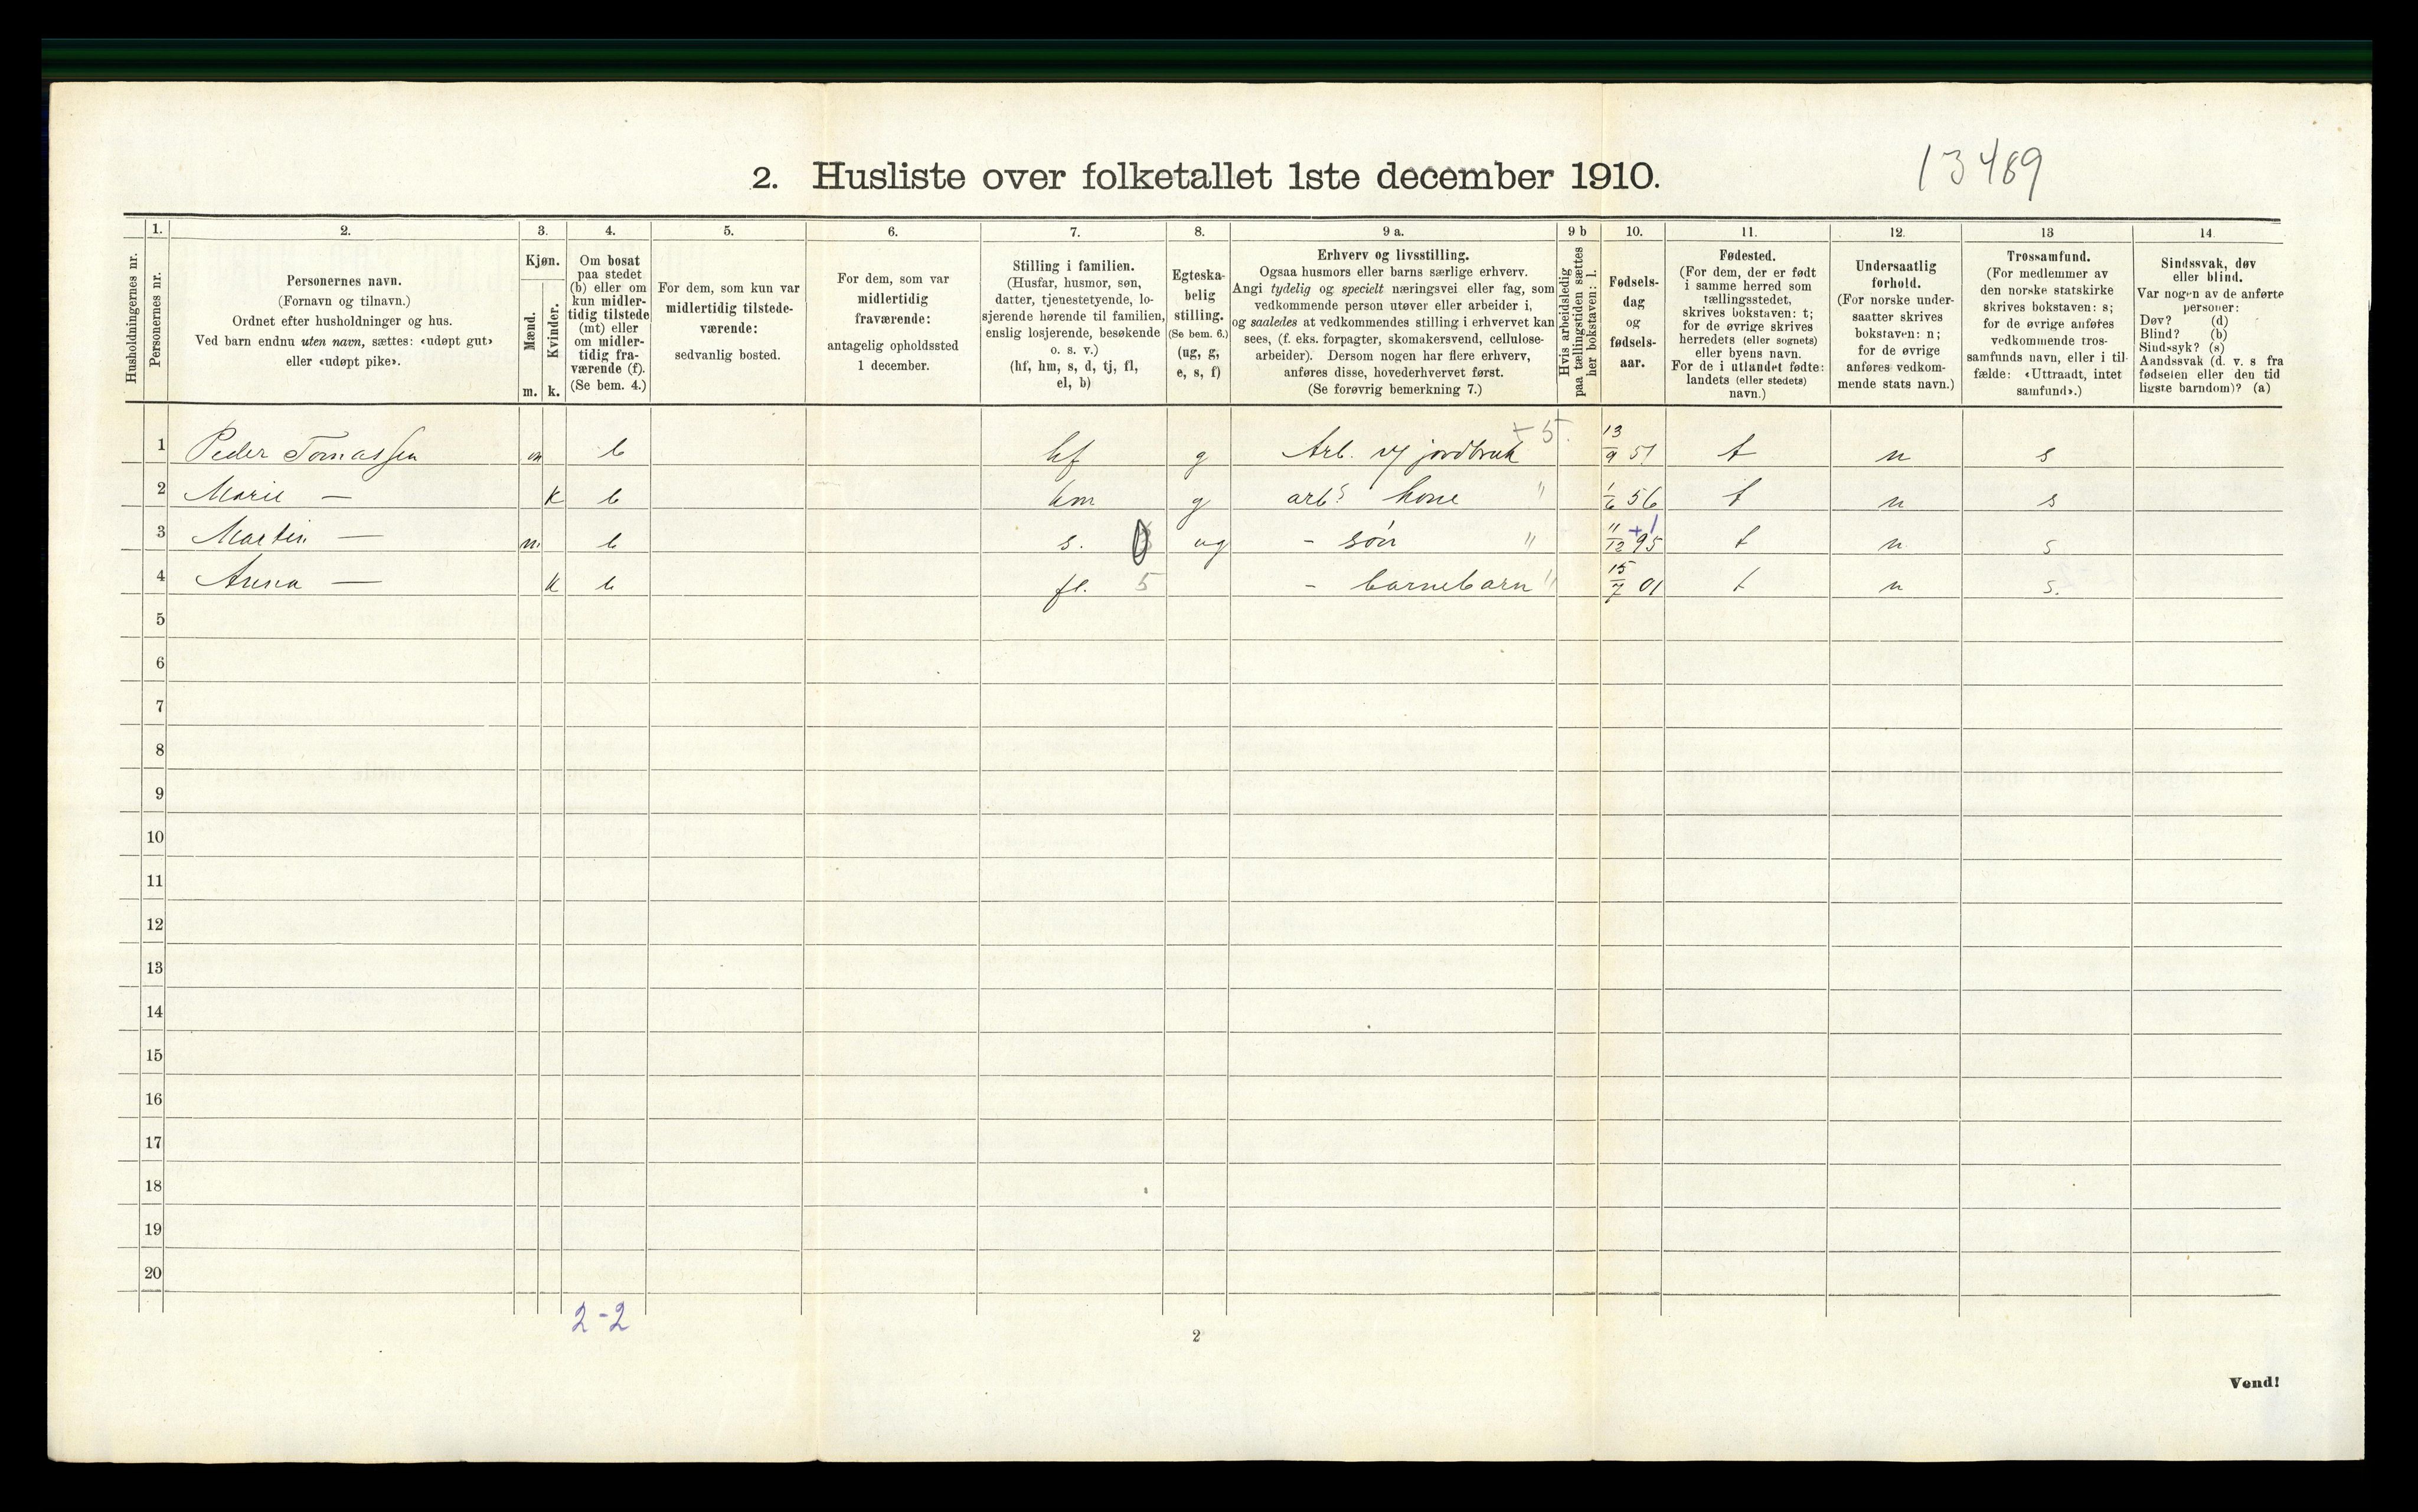 13489
2. Husliste over folketallet 1ste december 1910.
Husholdningernes nr.
1.
Personernes nr.
2.
Personernes navn.
(Fornavn og tilnavn.)
Ordnet efter husholdninger og hus.
Ved barn endnu uten navn, sættes: «udøpt gut»
eller «udøpt pike».
3.
Kjøn.
Mænd.
Kvinder.
m. k.
4.
Om bosat
paa stedet
(b) eller om
kun midler-
tidig tilstede
(mt) eller
om midler-
tidig fra-
værende (f).
(Se bem. 4.)
5.
For dem, som kun var
midlertidig tilstede-
værende:
sedvanlig bosted.
6.
For dem, som var
midlertidig
fraværende:
antagelig opholdssted
1 december.
7.
Stilling i familien.
(Husfar, husmor, søn,
datter, tjenestetyende, lo-
sjerende hørende til familien,
enslig losjerende, besøkende
o. s. v.)
(hf, hm, s, d, tj, fl,
el, b)
8.
Egteska-
belig
stilling.
(Se bem. 6.)
(ug, g,
e, s, f)
9 a.
Erhverv og livsstilling.
Ogsaa husmors eller barns særlige erhverv.
Angi tydelig og specielt næringsvei eller fag, som
vedkommende person utøver eller arbeider i,
og saaledes at vedkommendes stilling i erhvervet kan
sees, (f. eks. forpagter, skomakersvend, cellulose-
arbeider). Dersom nogen har flere erhverv,
anføres disse, hovederhvervet først.
(Se forøvrig bemerkning 7.)
9 b
Hvis arbeidsledig
paa tællingstiden sættes
her bokstaven: l.
10.
Fødsels-
dag
og
fødsels-
aar.
11.
Fødested.
(For dem, der er født
i samme herred som
tællingsstedet,
skrives bokstaven: t;
for de øvrige skrives
herredets (eller sognets)
eller byens navn.
For de i utlandet fødte:
landets (eller stedets)
navn.)
12.
Undersaatlig
forhold.
(For norske under-
saatter skrives
bokstaven: n;
for de øvrige
anføres vedkom-
mende stats navn.)
13
Trossamfund.
(For medlemmer av
den norske statskirke
skrives bokstaven: s;
for de øvrige anføres
vedkommende tros-
samfunds navn, eller i til-
fælde: «Uttraadt, intet
samfund».)
14
Sindssvak, døv
eller blind.
Var nogen av de anførte
personer:
Døv? (d)
Blind? (b)
Sindssyk? (s)
Aandssvak (d. v. s fra
fødselen eller den tid
ligste barndom)? (a)
1 Peder Tomassen m b hf g Arb. v/ jordbruk + 5. 13/9 51 t n s
2 Marie — k b hm g arbs kone " 1/6 56 t n s
3 Martin — m b s. ug - søn " 11/12 95 +1 t n s
4 Anna — k b fl. 5 - barnebarn " 15/7 01 t n s.
5
6
7
8
9
10
11
12
13
14
15
16
17
18
19
20
2-2
2
Vend!